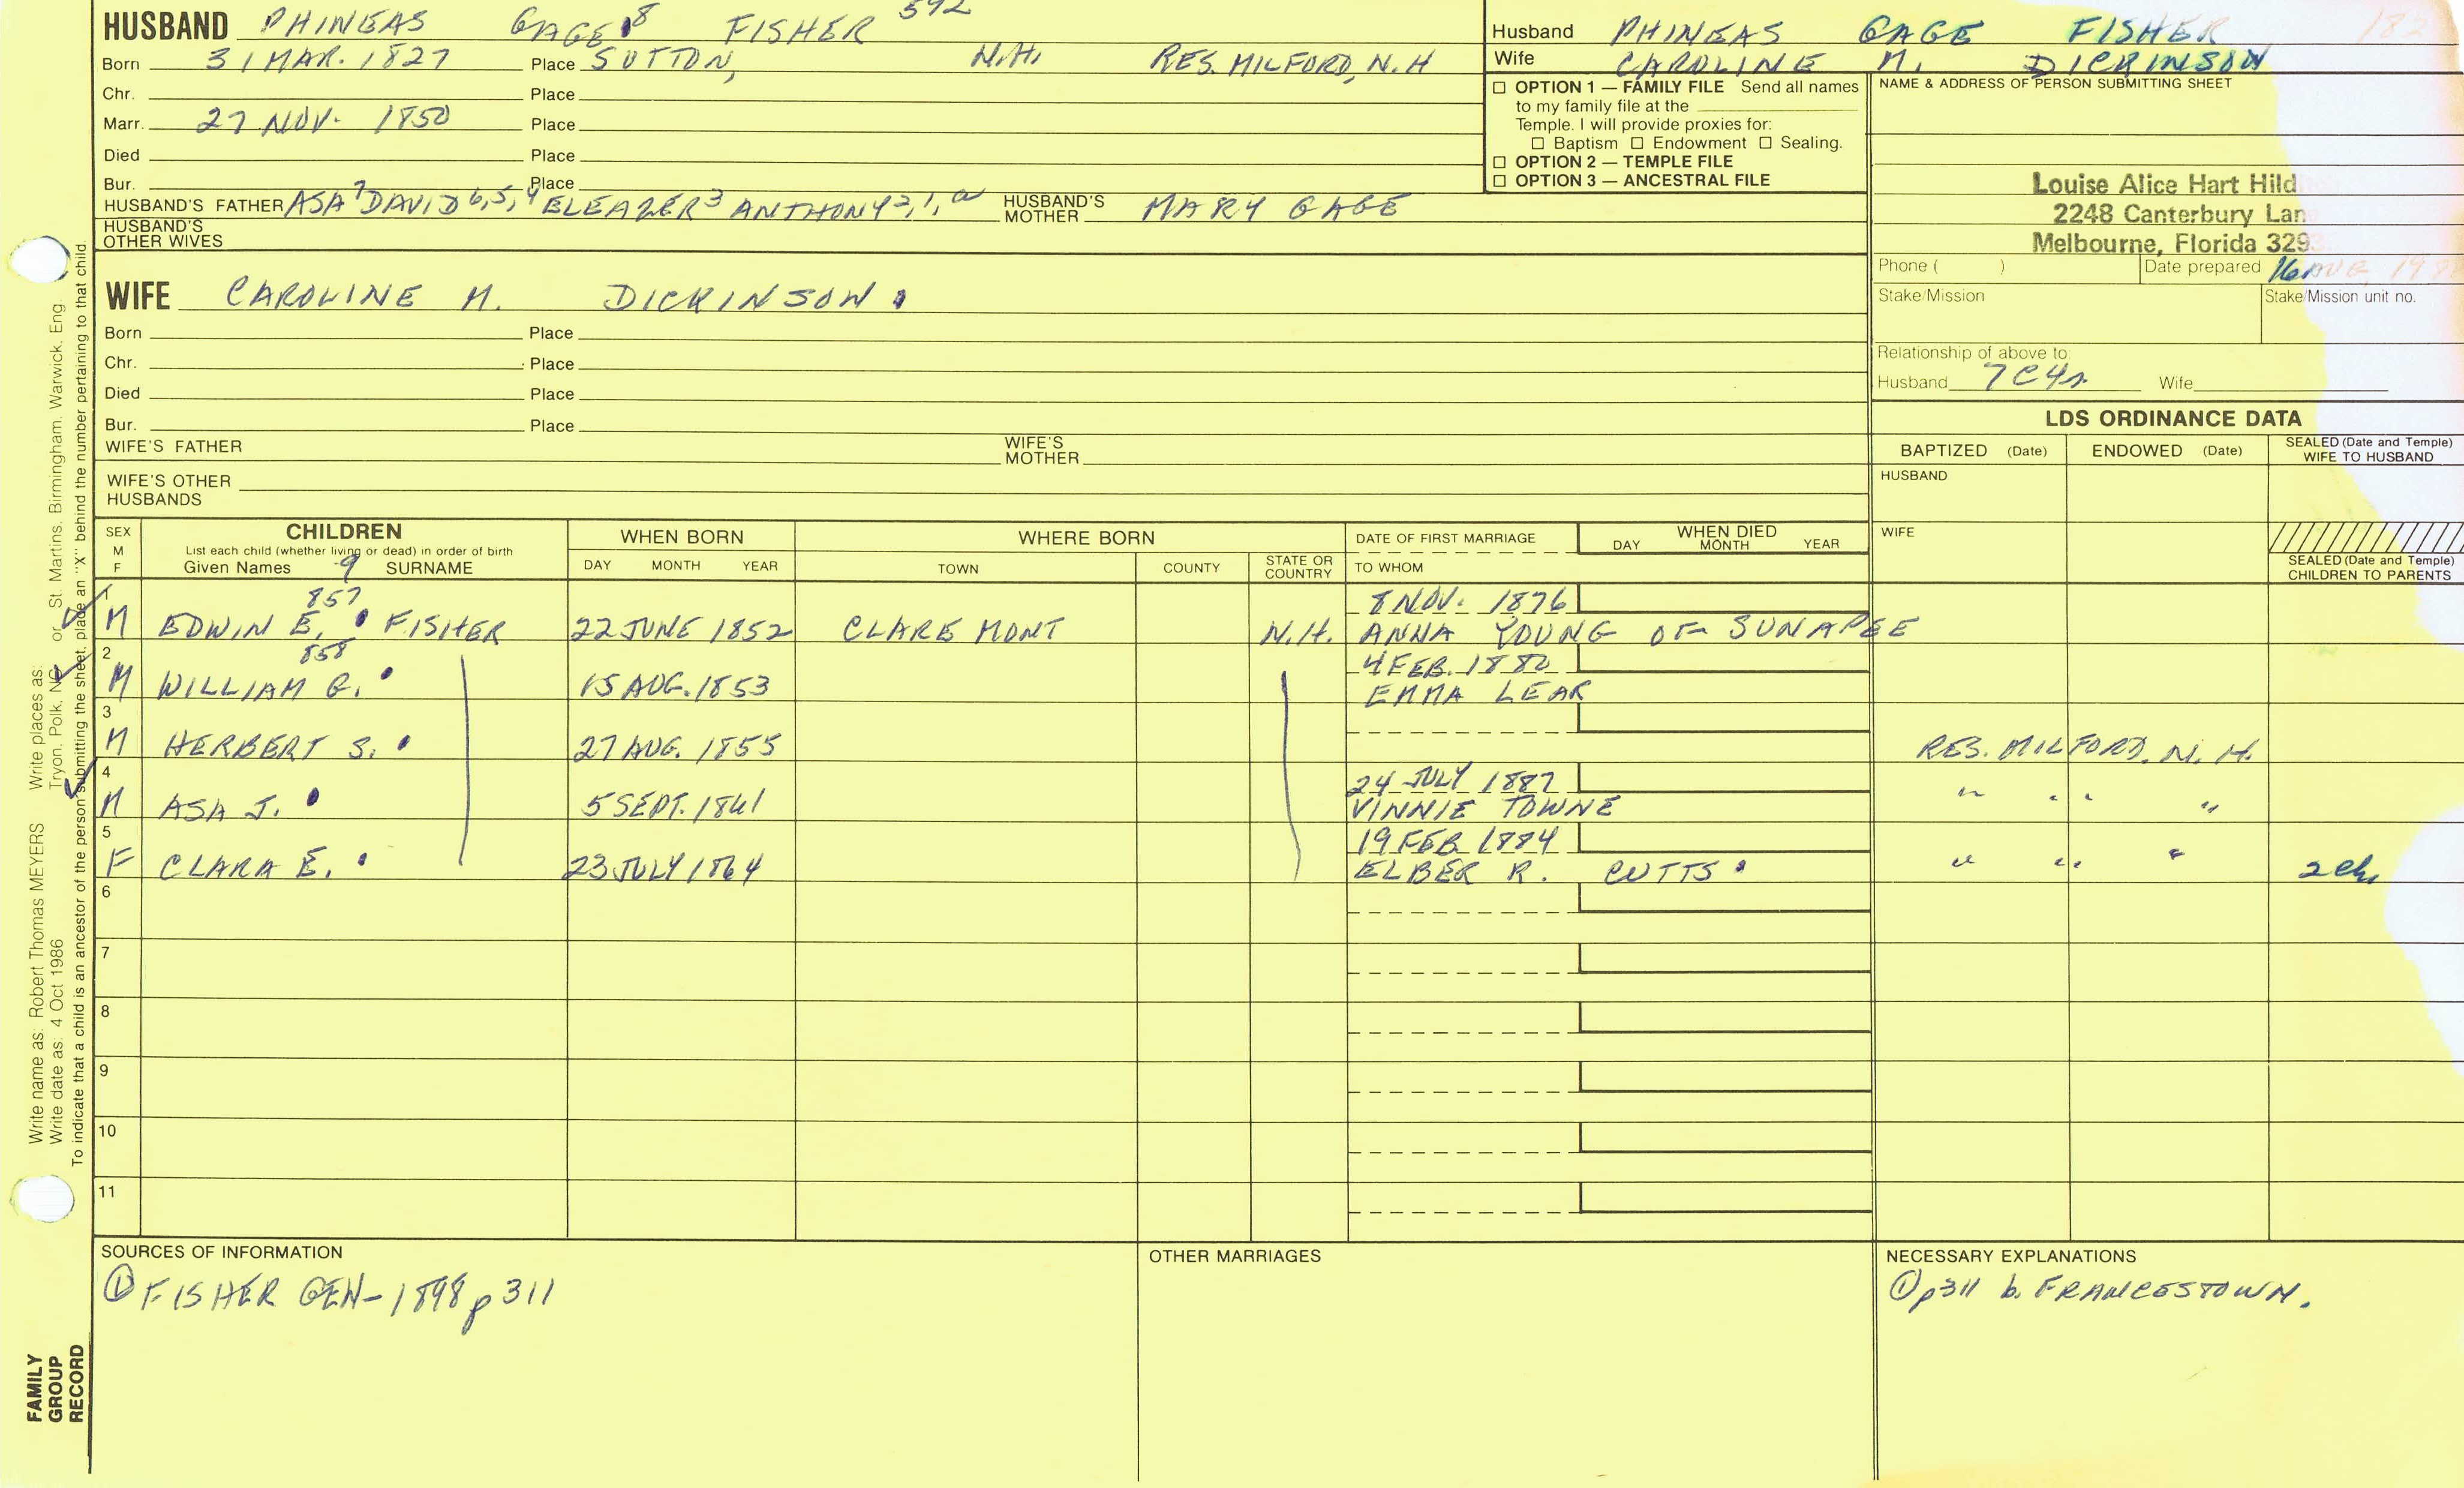 HUSBAND PHINEAS GAGE 8 FISHER 592
Born 31 MAR. 1827 Place SUTTON, N.H. RES. MILFORD, N.H
Chr. Place
Marr. 27 NOV. 1850 Place
Died Place
Bur. Place
HUSBAND'S FATHER ASA 7 DAVID 6,5,4 ELEAZER 3 ANTHONY 2,1,a HUSBAND'S MOTHER MARY GAGE
HUSBAND'S OTHER WIVES
Husband PHINEAS GAGE FISHER
Wife CAROLINE M. DICKINSON
☐ OPTION 1 — FAMILY FILE Send all names
to my family file at the
Temple. I will provide proxies for:
☐ Baptism ☐ Endowment ☐ Sealing.
☐ OPTION 2 — TEMPLE FILE
☐ OPTION 3 — ANCESTRAL FILE
NAME & ADDRESS OF PERSON SUBMITTING SHEET
Louise Alice Hart Hild
2248 Canterbury Lan
Melbourne, Florida 329
Phone ( ) Date prepared 16 AUG 19
Stake/Mission Stake/Mission unit no.
Relationship of above to:
Husband 7C4r Wife
WIFE CAROLINE M. DICKINSON
Born Place
Chr. Place
Died Place
Bur. Place
WIFE'S FATHER WIFE'S MOTHER
WIFE'S OTHER HUSBANDS
LDS ORDINANCE DATA
BAPTIZED (Date) ENDOWED (Date) SEALED (Date and Temple) WIFE TO HUSBAND
HUSBAND
WIFE
SEALED (Date and Temple) CHILDREN TO PARENTS
SEX M F
CHILDREN
List each child (whether living or dead) in order of birth
Given Names 9 SURNAME
WHEN BORN
DAY MONTH YEAR
WHERE BORN
TOWN COUNTY STATE OR COUNTRY
DATE OF FIRST MARRIAGE
TO WHOM
WHEN DIED
DAY MONTH YEAR
1 857 8 NOV. 1876
M EDWIN E. FISHER 22 JUNE 1852 CLAREMONT N.H. ANNA YOUNG OF SUNAPEE
2 858 4 FEB. 1880
M WILLIAM G. 15 AUG. 1853 EMMA LEAR
3
M HERBERT S. 27 AUG. 1855 RES. MILFORD, N.H.
4 24 JULY 1887
M ASA J. 5 SEPT. 1861 VINNIE TOWNE " " "
5 19 FEB 1884
F CLARA E. 23 JULY 1864 ELBER R. CUTTS " " " 2 ch.
6
7
8
9
10
11
SOURCES OF INFORMATION
① FISHER GEN-1898 p 311
OTHER MARRIAGES
NECESSARY EXPLANATIONS
① p311 b. FRANCESTOWN.
Write name as: Robert Thomas MEYERS Write places as:
Write date as: 4 Oct 1986 Tryon, Polk, NC or St. Martins, Birmingham, Warwick, Eng.
To indicate that a child is an ancestor of the person submitting the sheet, place an "X" behind the number pertaining to that child
FAMILY
GROUP
RECORD